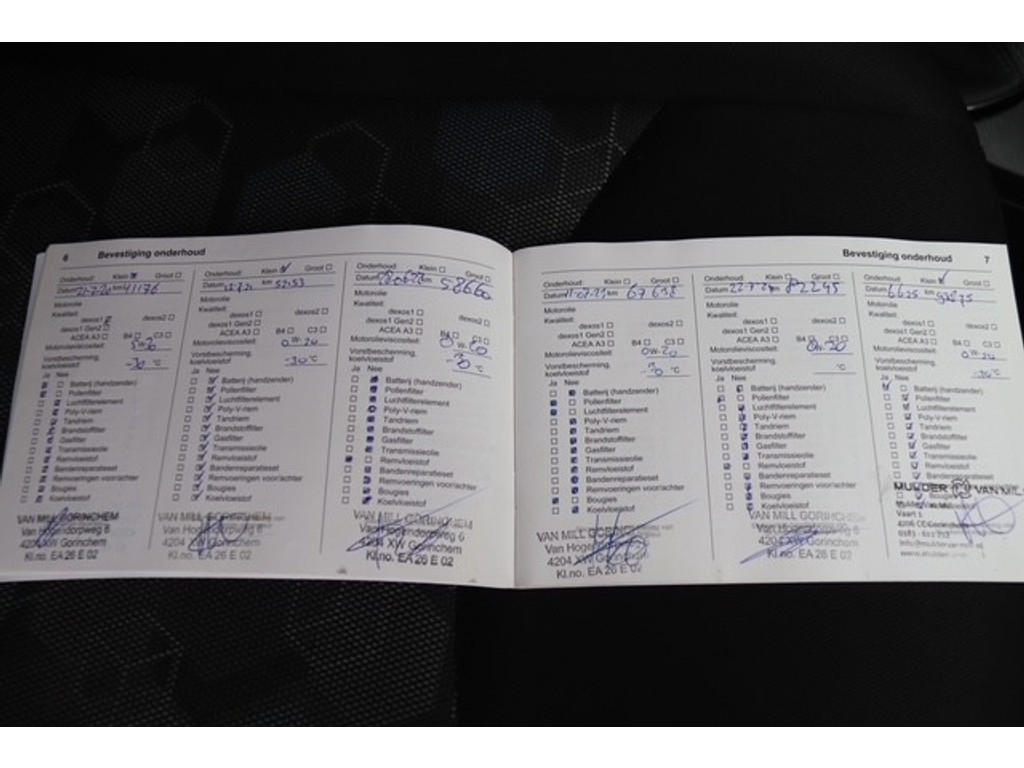 6 Bevestiging onderhoud
Onderhoud: Klein Groot
Datum 21-7-20 km 41176
Motorolie
Kwaliteit:
dexos1 dexos2
dexos1 Gen2
ACEA A3 B4 C3
Motorolieviscositeit:
Vorstbescherming, koelvloeistof -30 °C
Ja Nee
Batterij (handzender)
Pollenfilter
Luchtfilterelement
Poly-V-riem
Tandriem
Brandstoffilter
Gasfilter
Transmissieolie
Remvloeistof
Bandenreparatieset
Remvoeringen voor/achter
Bougies
Koelvloeistof
VAN MILL GORINCHEM
Van Hogendorpweg 6
4204 XW Gorinchem
Kl.no. EA 26 E 02
Onderhoud: Klein Groot
Datum km 52153
Motorolie
Kwaliteit:
dexos1 dexos2
dexos1 Gen2
ACEA A3 B4 C3
Motorolieviscositeit: 0W-20
Vorstbescherming, koelvloeistof -30 °C
Ja Nee
Batterij (handzender)
Pollenfilter
Luchtfilterelement
Poly-V-riem
Tandriem
Brandstoffilter
Gasfilter
Transmissieolie
Remvloeistof
Bandenreparatieset
Remvoeringen voor/achter
Bougies
Koelvloeistof
VAN MILL GORINCHEM
Van Hogendorpweg 6
4204 XW Gorinchem
Kl.no. EA 26 E 02
Onderhoud: Klein Groot
Datum km 58660
Motorolie
Kwaliteit:
dexos1 dexos2
dexos1 Gen2
ACEA A3 B4 C3
Motorolieviscositeit: 0W-20
Vorstbescherming, koelvloeistof -30 °C
Ja Nee
Batterij (handzender)
Pollenfilter
Luchtfilterelement
Poly-V-riem
Tandriem
Brandstoffilter
Gasfilter
Transmissieolie
Remvloeistof
Bandenreparatieset
Remvoeringen voor/achter
Bougies
Koelvloeistof
VAN MILL GORINCHEM
Van Hogendorpweg 6
4204 XW Gorinchem
Kl.no. EA 26 E 02
Bevestiging onderhoud 7
Onderhoud: Klein Groot
Datum 11-07-23 km 67638
Motorolie
Kwaliteit:
dexos1 dexos2
dexos1 Gen2
ACEA A3 B4 C3
Motorolieviscositeit: 0W-20
Vorstbescherming, koelvloeistof °C
Ja Nee
Batterij (handzender)
Pollenfilter
Luchtfilterelement
Poly-V-riem
Tandriem
Brandstoffilter
Gasfilter
Transmissieolie
Remvloeistof
Bandenreparatieset
Remvoeringen voor/achter
Bougies
Koelvloeistof
VAN MILL GORINCHEM
Van Hogendorpweg 6
4204 XW Gorinchem
Kl.no. EA 26 E 02
Onderhoud: Klein Groot
Datum 22-7-24 km 82245
Motorolie
Kwaliteit:
dexos1 dexos2
dexos1 Gen2
ACEA A3 B4 C3
Motorolieviscositeit: 0W-20
Vorstbescherming, koelvloeistof °C
Ja Nee
Batterij (handzender)
Pollenfilter
Luchtfilterelement
Poly-V-riem
Tandriem
Brandstoffilter
Gasfilter
Transmissieolie
Remvloeistof
Bandenreparatieset
Remvoeringen voor/achter
Bougies
Koelvloeistof
VAN MILL GORINCHEM
Van Hogendorpweg 6
4204 XW Gorinchem
Kl.no. EA 26 E 02
Onderhoud: Klein Groot
Datum km
Motorolie
Kwaliteit:
dexos1 dexos2
dexos1 Gen2
ACEA A3 B4 C3
Motorolieviscositeit: 0W-20
Vorstbescherming, koelvloeistof -30 °C
Ja Nee
Batterij (handzender)
Pollenfilter
Luchtfilterelement
Poly-V-riem
Tandriem
Brandstoffilter
Gasfilter
Transmissieolie
Remvloeistof
Bandenreparatieset
Bougies
MULDER VAN MILL
Vaart 1